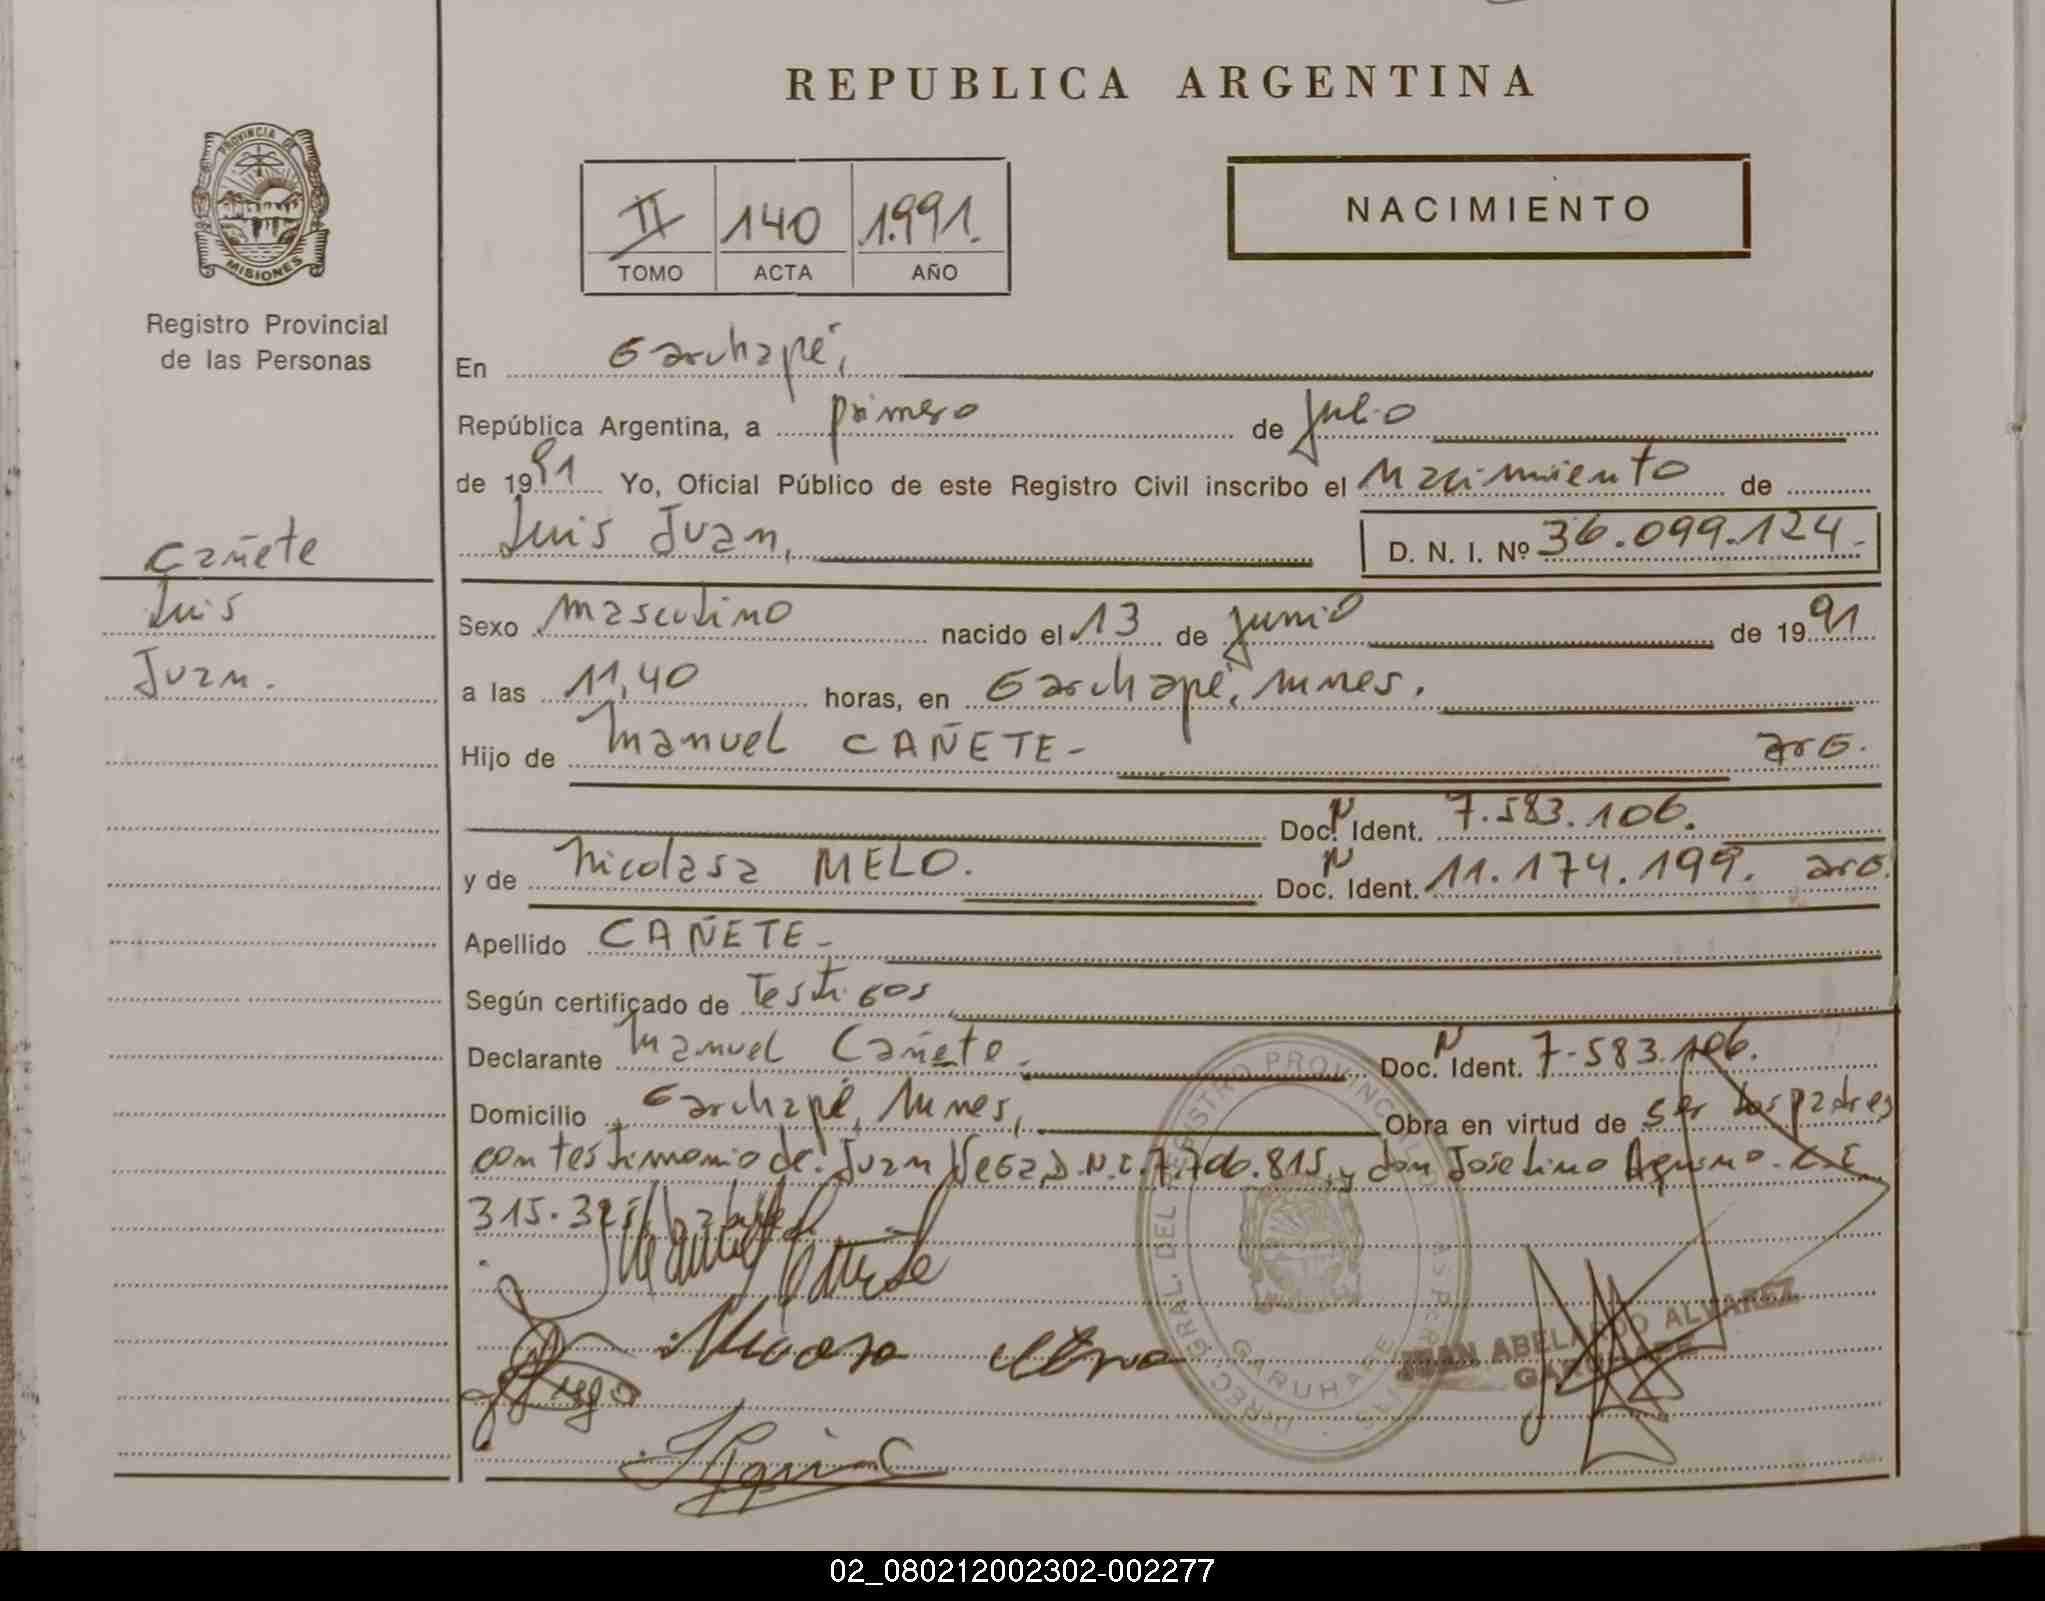 REPUBLICA ARGENTINA
PROVINCIA DE
MISIONES
Registro Provincial
de las Personas
II 140 1.991.
TOMO ACTA AÑO
NACIMIENTO
En Garuhapé,
República Argentina, a primero de Julio
de 1991 Yo, Oficial Público de este Registro Civil inscribo el Nacimiento de
Luis Juan,
D. N. I. Nº 36.099.124-
Cañete
Luis
Juan.
Sexo masculino nacido el 13 de junio de 1991
a las 11,40 horas, en Garuhapé, Mnes.
Hijo de Manuel CAÑETE- arg.
Doc. N Ident. 7.583.106.
y de Nicolasa MELO. Doc. N Ident. 11.174.199. arg.
Apellido CAÑETE-
Según certificado de Testigos
Declarante Manuel Cañete. Doc. N Ident. 7.583.106.
Domicilio Garuhapé, Mnes, Obra en virtud de ser los padres
con testimonio de: Juan Vega, D.N.I. 7.706.815, y don Joselino Aquino- C.I.
JUAN ABELARDO ALVAREZ
GARUHAPE
02_080212002302-002277